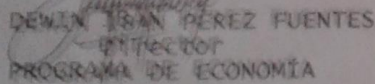 DEWIN IRAN PÉREZ FUENTES
Director
PROGRAMA DE ECONOMÍA